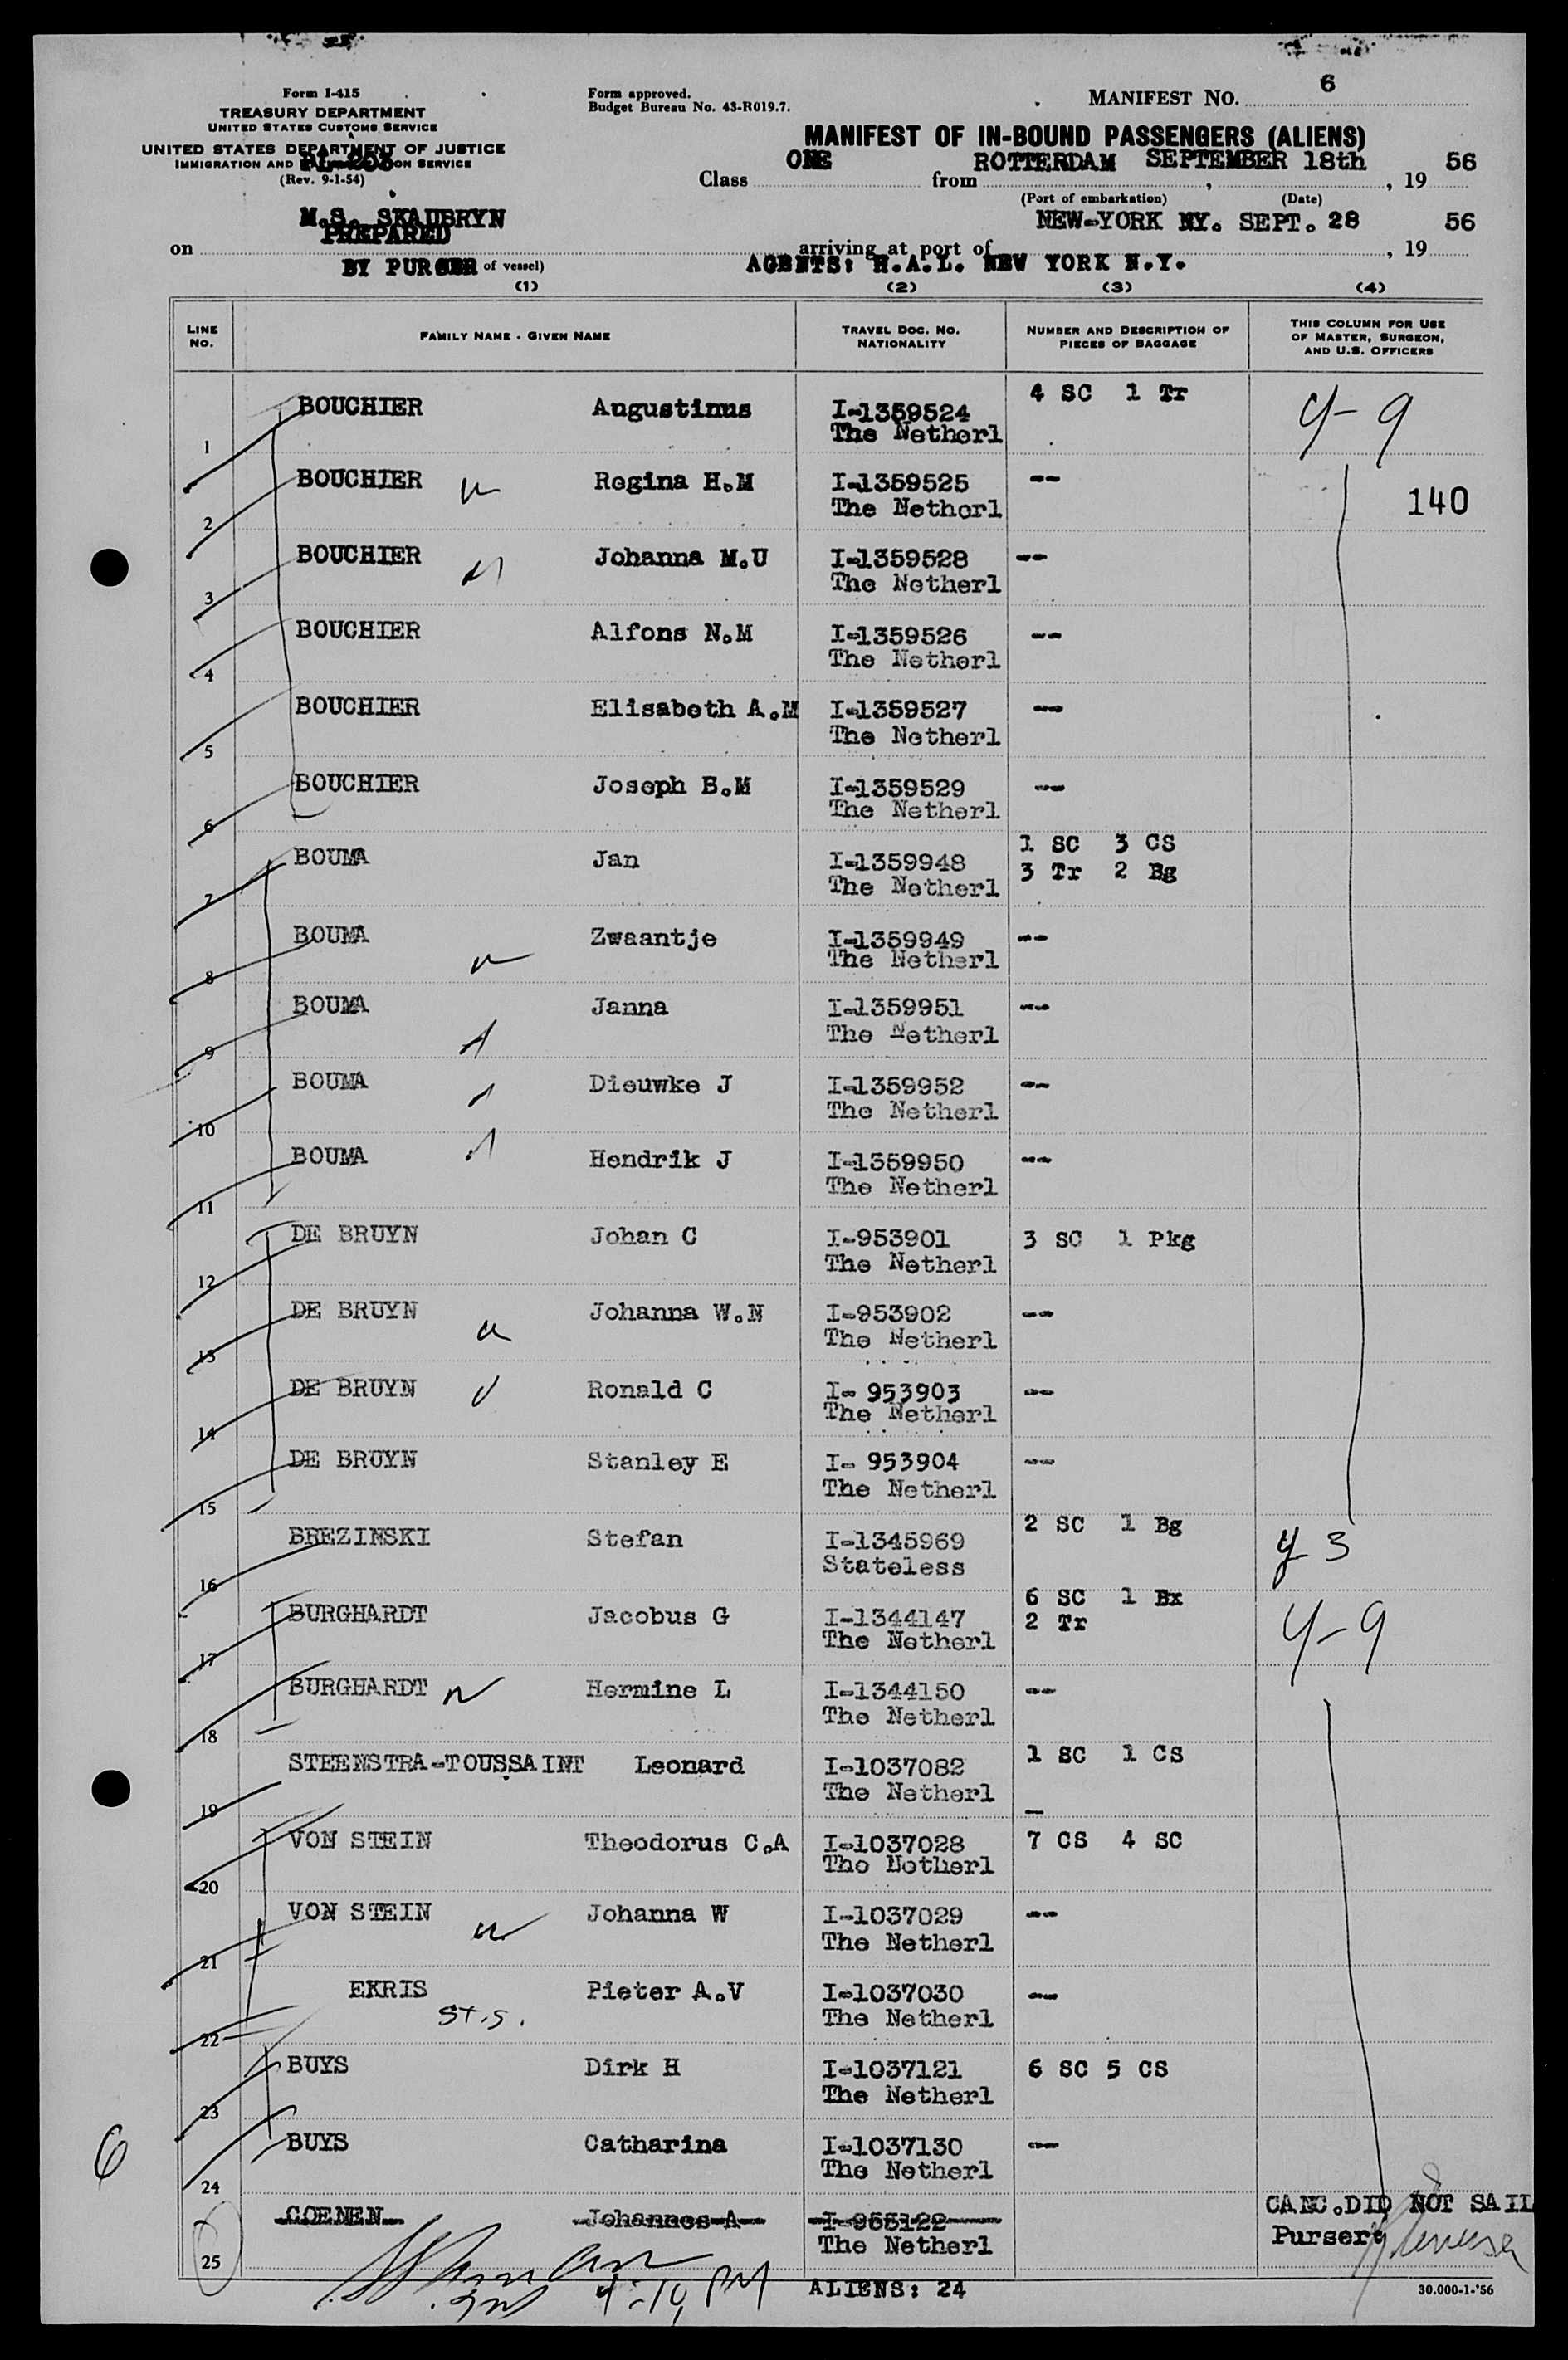 Form I-415
TREASURY DEPARTMENT
UNITED STATES CUSTOMS SERVICE
UNITED STATES DEPARTMENT OF JUSTICE
IMMIGRATION AND ON SERVICE
(Rev. 9-1-54)
Form approved.
Budget Bureau No. 43-R019.7.
MANIFEST NO. 6
MANIFEST OF IN-BOUND PASSENGERS (ALIENS)
Class ONE from ROTTERDAM SEPTEMBER 18th, 19 56
(Port of embarkation) (Date)
M.S. SKAUBRYN
PREPARED
on arriving at port of NEW-YORK NY. SEPT. 28, 19 56
BY PURSER of vessel) AGENTS: H.A.L. NEW YORK N.Y.
(1) (2) (3) (4)
LINE NO. FAMILY NAME - GIVEN NAME TRAVEL DOC. NO. NATIONALITY NUMBER AND DESCRIPTION OF PIECES OF BAGGAGE THIS COLUMN FOR USE OF MASTER, SURGEON, AND U.S. OFFICERS
1 BOUCHIER Augustinus I-1359524 4 SC 1 Tr 4-9
The Netherl
2 BOUCHIER Regina H.M I-1359525 -- 140
The Netherl
3 BOUCHIER Johanna M.U I-1359528 --
The Netherl
4 BOUCHIER Alfons N.M I-1359526 --
The Netherl
5 BOUCHIER Elisabeth A.M I-1359527 --
The Netherl
6 BOUCHIER Joseph B.M I-1359529 --
The Netherl
7 BOUMA Jan I-1359948 1 SC 3 CS
The Netherl 3 Tr 2 Bg
8 BOUMA Zwaantje I-1359949 --
The Netherl
9 BOUMA Janna I-1359951 --
The Netherl
10 BOUMA Dieuwke J I-1359952 --
The Netherl
11 BOUMA Hendrik J I-1359950 --
The Netherl
12 DE BRUYN Johan C I-953901 3 SC 1 Pkg
The Netherl
13 DE BRUYN Johanna W.N I-953902 --
The Netherl
14 DE BRUYN Ronald C I- 953903 --
The Netherl
15 DE BRUYN Stanley E I- 953904 --
The Netherl
16 BREZINSKI Stefan I-1345969 2 SC 1 Bg y 3
Stateless
17 BURGHARDT Jacobus G I-1344147 6 SC 1 Bx 4-9
The Netherl 2 Tr
18 BURGHARDT Hermine L I-1344150 --
The Netherl
19 STEENSTRA-TOUSSAINT Leonard I-1037082 1 SC 1 CS
The Netherl
20 VON STEIN Theodorus C.A I-1037028 7 CS 4 SC
The Netherl
21 VON STEIN Johanna W I-1037029 --
The Netherl
22 EKRIS St.S. Pieter A.V I-1037030 --
The Netherl
23 BUYS Dirk H I-1037121 6 SC 5 CS
The Netherl
6
24 BUYS Catharina I-1037130 --
The Netherl
25 COENEN Johannes A I-955122 CANC.DID NOT SAIL
The Netherl Purser:
ALIENS: 24
30.000-1-'56